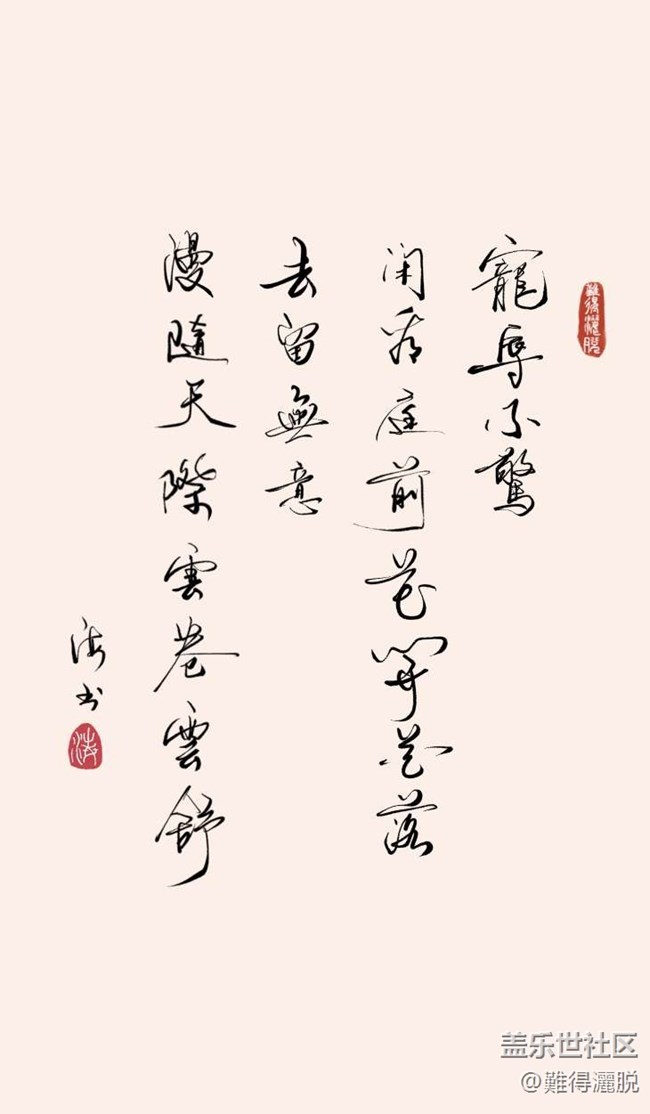 難得灑脱
寵辱不驚
閑看庭前花開花落
去留無意
漫隨天際雲卷雲舒
海书
海
盖乐世社区
@難得灑脱